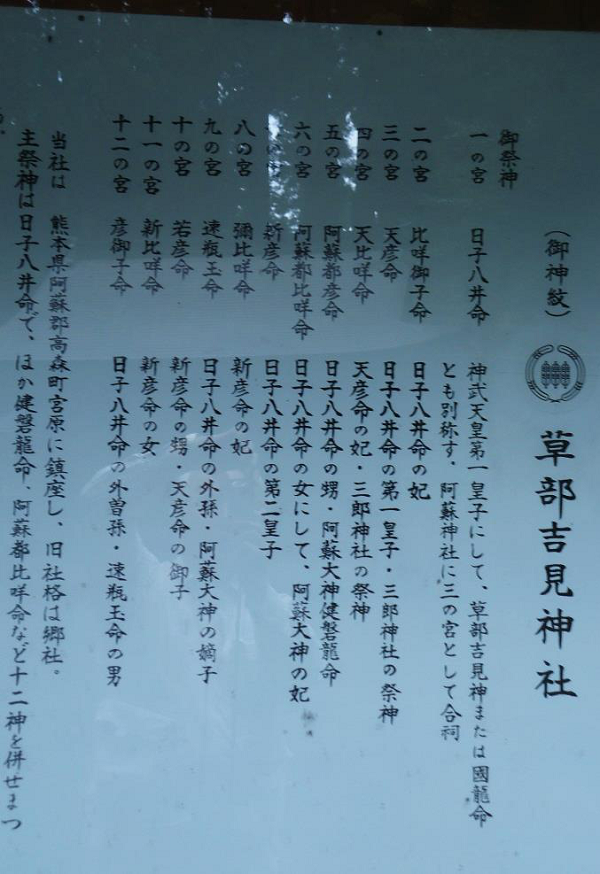 草部吉見神社
（御神紋）
御祭神
一の宮 日子八井命 神武天皇第一皇子にして、草部吉見神または國龍命
とも別称す。阿蘇神社に三の宮として合祠
二の宮 比咩御子命 日子八井命の妃
三の宮 天彦命 日子八井命の第一皇子・三郎神社の祭神
四の宮 天比咩命 天彦命の妃・三郎神社の祭神
五の宮 阿蘇都彦命 日子八井命の甥・阿蘇大神健磐龍命
六の宮 阿蘇都比咩命 日子八井命の女にして、阿蘇大神の妃
新彦命 日子八井命の第二皇子
八の宮 彌比咩命 新彦命の妃
九の宮 速瓶玉命 日子八井命の外孫・阿蘇大神の嫡子
十の宮 若彦命 新彦命の甥・天彦命の御子
十一の宮 新比咩命 新彦命の女
十二の宮 彦御子命 日子八井命の外曽孫・速瓶玉命の男
当社は 熊本県阿蘇郡高森町宮原に鎮座し、旧社格は郷社。
主祭神は日子八井命で、ほか健磐龍命、阿蘇都比咩命など十二神を併せまつ